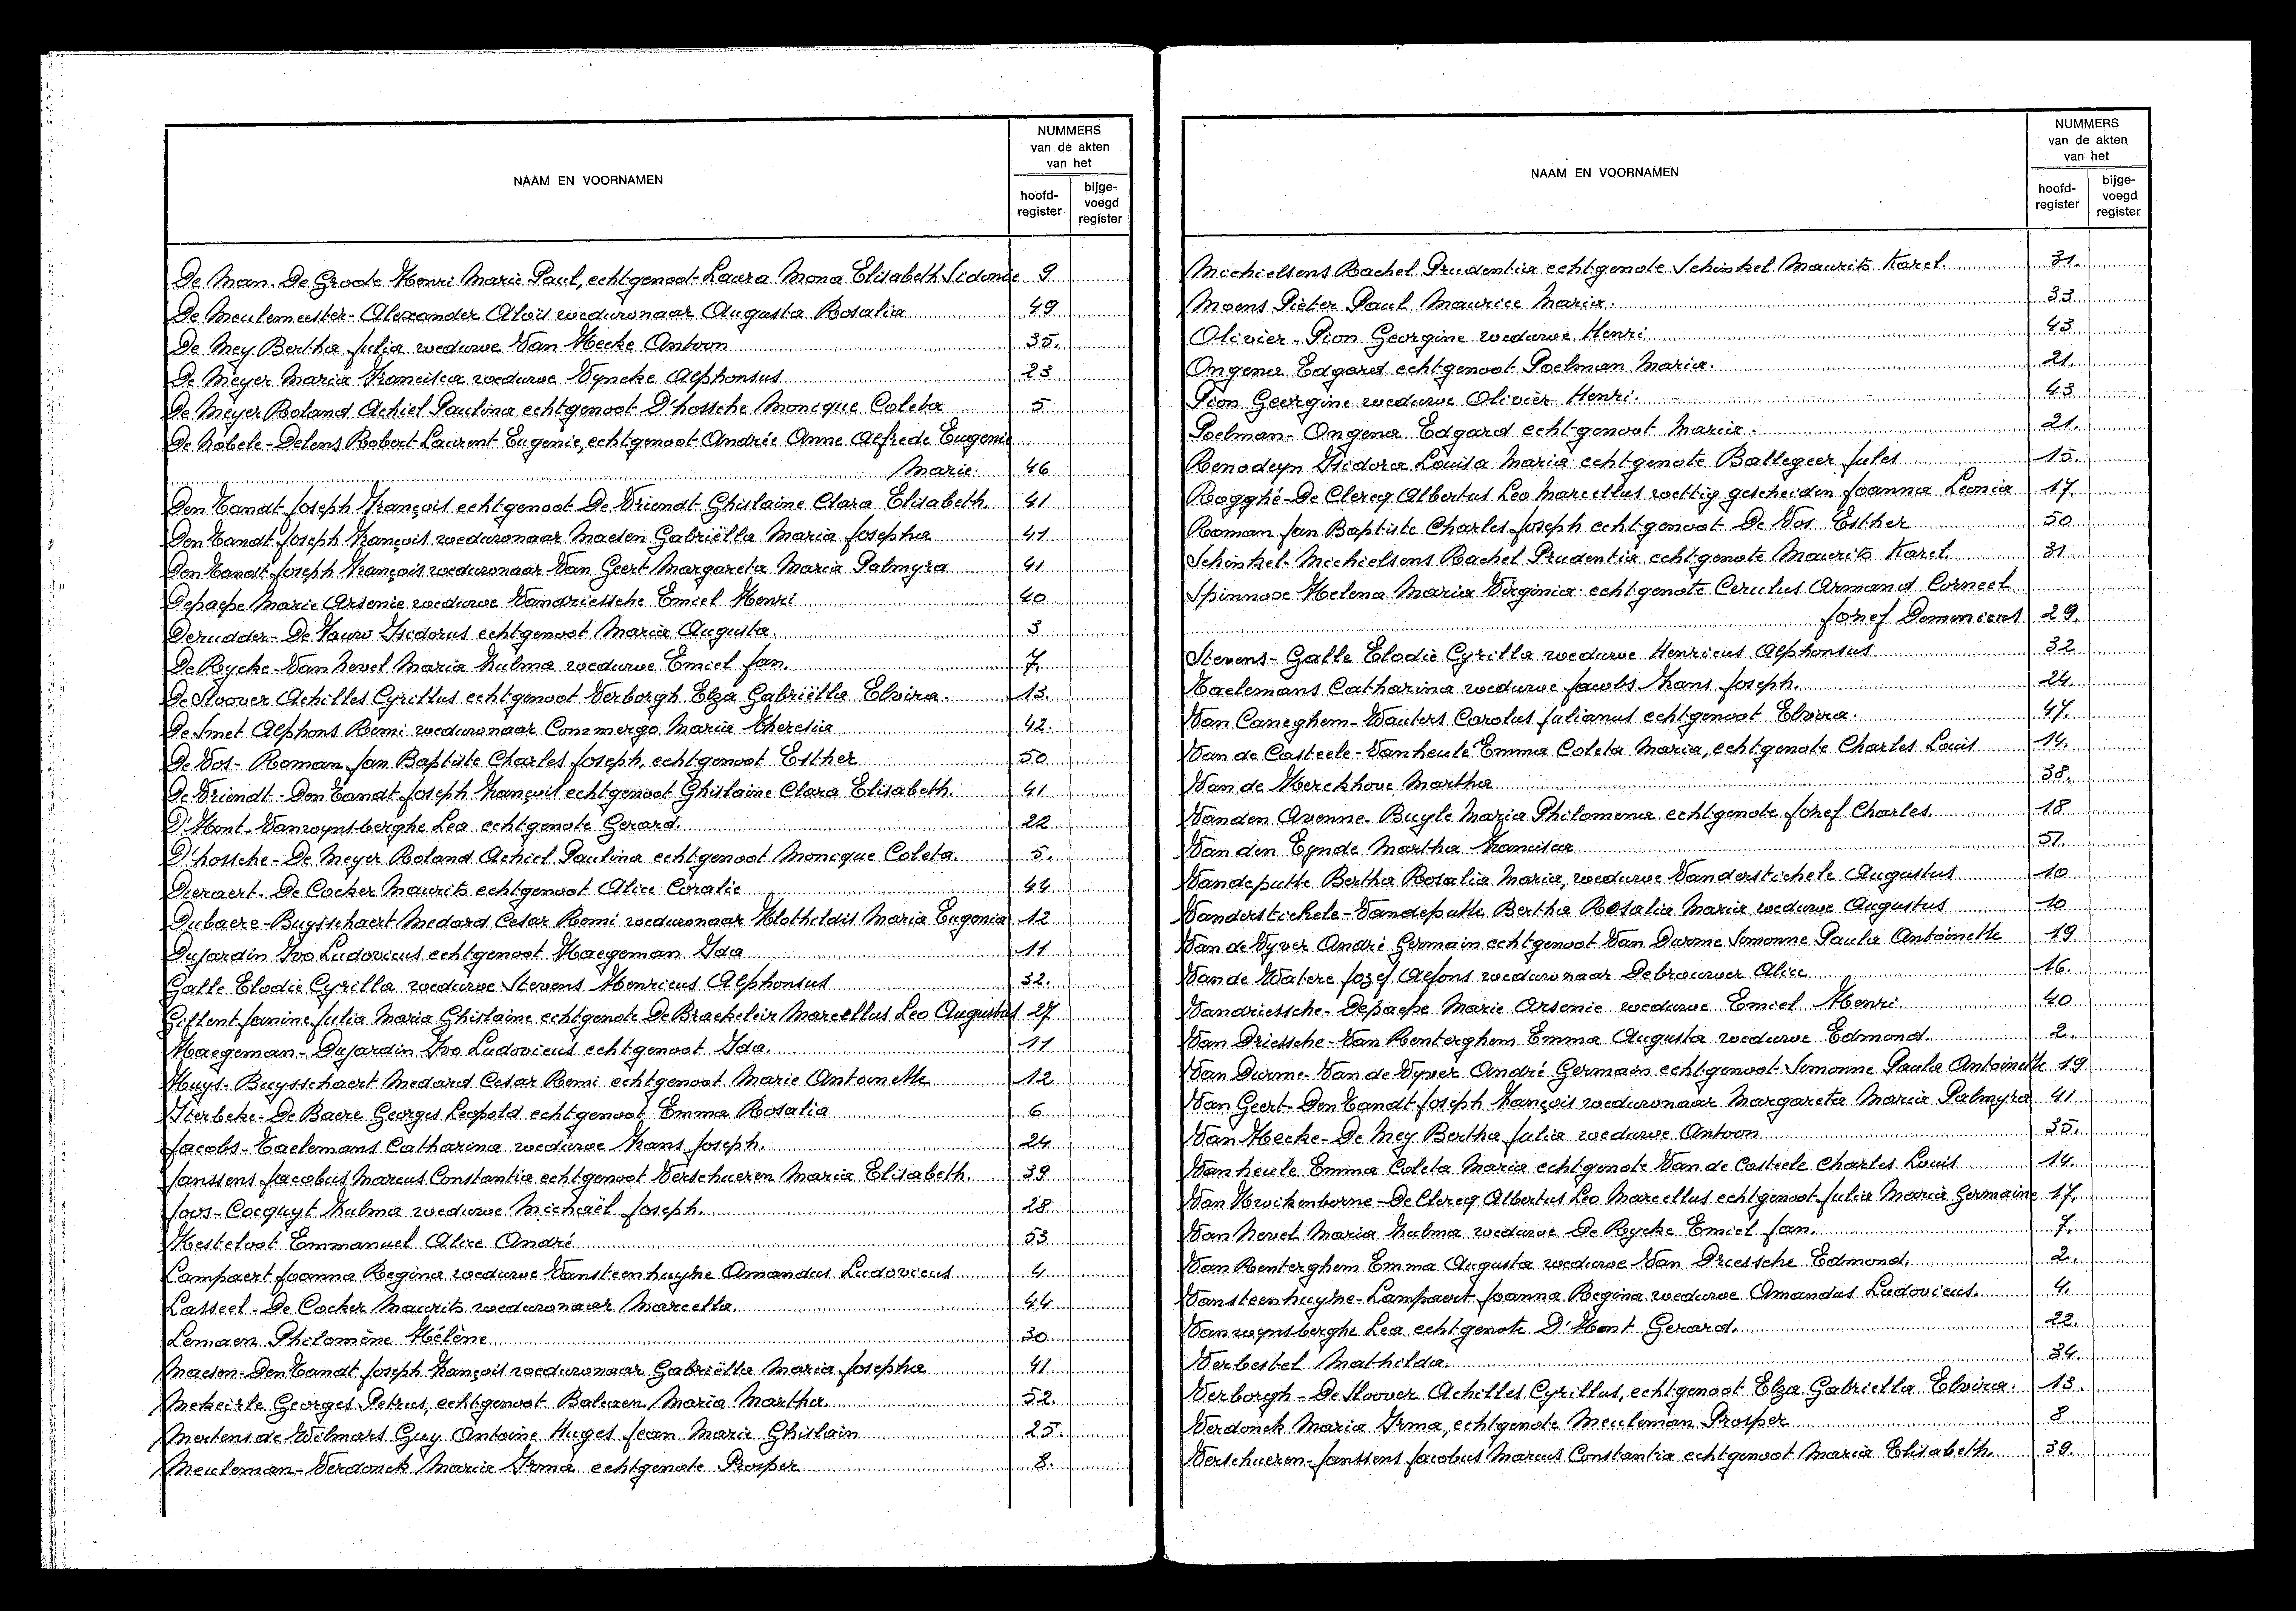 NAAM EN VOORNAMEN
NUMMERS
van de akten
van het
hoofd-
register
bijge-
voegd
register
De Man-De Groote Henri Marie Paul, echtgenoot Laura Mona Elisabeth Sidonie 9
De Meulemeester-Alexander Alois weduwnaar Augusta Rosalia 49
De Mey Bertha Julia weduwe Van Hecke Antoon 35.
De Meyer Maria Francisca weduwe Vyncke Alphonsus 23
De Meyer Roland Achiel Paulina echtgenoot D'hossche Monique Coleta 5
De Nobele-Delens Robert Laurent Eugenie, echtgenoot Andrée Anne Alfrede Eugenie
Marie. 46
Den Tandt Joseph François echtgenoot De Vriendt Ghislaine Clara Elisabeth. 41
Den Tandt Joseph François weduwnaar Maesen Gabriëlla Maria Josepha 41
Den Tandt Joseph François weduwnaar Van Geert Margareta Maria Palmyra 41
Depaepe Marie Arsenie weduwe Vandriessche Emiel Henri 40
Derudder-De Pauw Isidorus echtgenoot Maria Augusta. 3
De Rycke-Van Nevel Maria Zulma weduwe Emiel Jan. 7.
De Stoover Achilles Cyrillus echtgenoot Verborgh Elza Gabriëlla Elvira. 13.
De Smet Alphons Remi weduwnaar Conzmergo Maria Theresia 42.
De Vos-Roman Jan Baptiste Charles Joseph, echtgenoot Esther 50
De Vriendt-Den Tandt Joseph François echtgenoot Ghislaine Clara Elisabeth. 41
D'Hont-Vanwynsberghe Lea echtgenote Gerard. 22
D'hossche-De Meyer Roland Achiel Paulina echtgenoot Monique Coleta. 5.
Dieraert-De Cocker Maurits echtgenoot Alice Coralie 44
Dubaere-Buysschaert Medard Cesar Remi weduwnaar Klothildis Maria Eugenia 12
Dujardin Ivo Ludovicus echtgenoot Haegeman Ida 11
Galle Elodie Cyrilla weduwe Stevens Henricus Alphonsus 32.
Gillent Janine Julia Maria Ghislaine echtgenote De Braekeleir Marcellus Leo Augustus 27
Haegeman-Dujardin Ivo Ludovicus echtgenoot Ida. 11
Huys-Buysschaert Medard Cesar Remi echtgenoot Marie Antoinette 12
Iterbeke-De Baere Georges Leopold echtgenoot Emma Rosalia 6
Jacobs-Taelemans Catharina weduwe Frans Joseph. 24
Janssens Jacobus Marcus Constantia echtgenoot Verschueren Maria Elisabeth. 39
Joos-Cocquyt Zulma weduwe Michaël Joseph. 28
Kesteloot Emmanuel Alice André 53
Lampaert Joanna Regina weduwe Vansteenhuyse Amandus Ludovicus 4
Lasseel-De Cocker Maurits weduwnaar Marcella. 44
Lemaen Philomène Hélène 30
Maesen-Den Tandt Joseph François weduwnaar Gabriëlla Maria Josepha 41
Mekeirle Georges Petrus, echtgenoot Balcaen Maria Martha. 52.
Mertens de Wilmars Guy Antoine Huges Jean Marie Ghislain 25.
Meuleman-Verdonck Maria Irma echtgenote Prosper 8.
NAAM EN VOORNAMEN
NUMMERS
van de akten
van het
hoofd-
register
bijge-
voegd
register
Michielsens Rachel Prudentia echtgenote Schinkel Maurits Karel. 31.
Moens Pieter Paul Maurice Maria. 33
Olivier-Pion Georgine weduwe Henri 43
Ongena Edgard echtgenoot Poelman Maria. 21.
Pion Georgine weduwe Olivier Henri. 43
Poelman-Ongena Edgard echtgenoot Maria. 21.
Renodeyn Isidora Louisa Maria echtgenote Ballegeer Jules 15.
Rogghé-De Clercq Albertus Leo Marcellus wettig gescheiden Joanna Leonia 17.
Roman Jan Baptiste Charles Joseph echtgenoot De Vos Esther 50
Schinkel-Michielsens Rachel Prudentia echtgenote Maurits Karel. 31
Spinnose Helena Maria Virginia echtgenote Cerulus Armand Corneel
Jozef Domenicus 29.
Stevens-Galle Elodie Cyrilla weduwe Henricus Alphonsus 32
Taelemans Catharina weduwe Jacobs Frans Joseph. 24.
Van Caneghem-Wauters Carolus Julianus echtgenoot Elvira. 47.
Van de Casteele-Vanheule Emma Coleta Maria, echtgenote Charles Louis 14.
Van de Kerckhove Martha 38.
Vanden Avenne-Buyle Maria Philomena echtgenote Jozef Charles. 18
Van den Eynde Martha Francisca 51.
Vandeputte Bertha Rosalia Maria, weduwe Vanderstichele Augustus 10
Vanderstichele-Vandeputte Bertha Rosalia Maria weduwe Augustus 10
Van de Vyver André Germain echtgenoot Van Durme Simonne Paula Antoinette 19
Van de Watere Jozef Alfons weduwnaar Debrouwer Alice 16.
Vandriessche-Depaepe Marie Arsenie weduwe Emiel Henri 40
Van Driessche-Van Renterghem Emma Augusta weduwe Edmond. 2.
Van Durme-Van de Vyver André Germain echtgenoot Simonne Paula Antoinette 19
Van Geert-Den Tandt Joseph François weduwnaar Margareta Maria Palmyra 41
Van Hecke-De Mey Bertha Julia weduwe Antoon 35.
Vanheule Emma Coleta Maria echtgenote Van de Casteele Charles Louis 14.
Van Kwikenborne-De Clercq Albertus Leo Marcellus echtgenoot Julia Maria Germaine 17.
Van Nevel Maria Zulma weduwe De Rycke Emiel Jan. 7.
Van Renterghem Emma Augusta weduwe Van Driessche Edmond. 2.
Vansteenhuyse-Lampaert Joanna Regina weduwe Amandus Ludovicus. 4.
Vanwynsberghe Lea echtgenote D'Hont Gerard. 22.
Verbestel Mathilda. 34.
Verborgh-De Stoover Achilles Cyrillus, echtgenoot Elza Gabriella Elvira. 13.
Verdonck Maria Irma, echtgenote Meuleman Prosper 8
Verschueren-Janssens Jacobus Marcus Constantia echtgenoot Maria Elisabeth. 39.